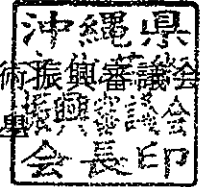 沖縄県
術振興審議会
振興審議会
会長印